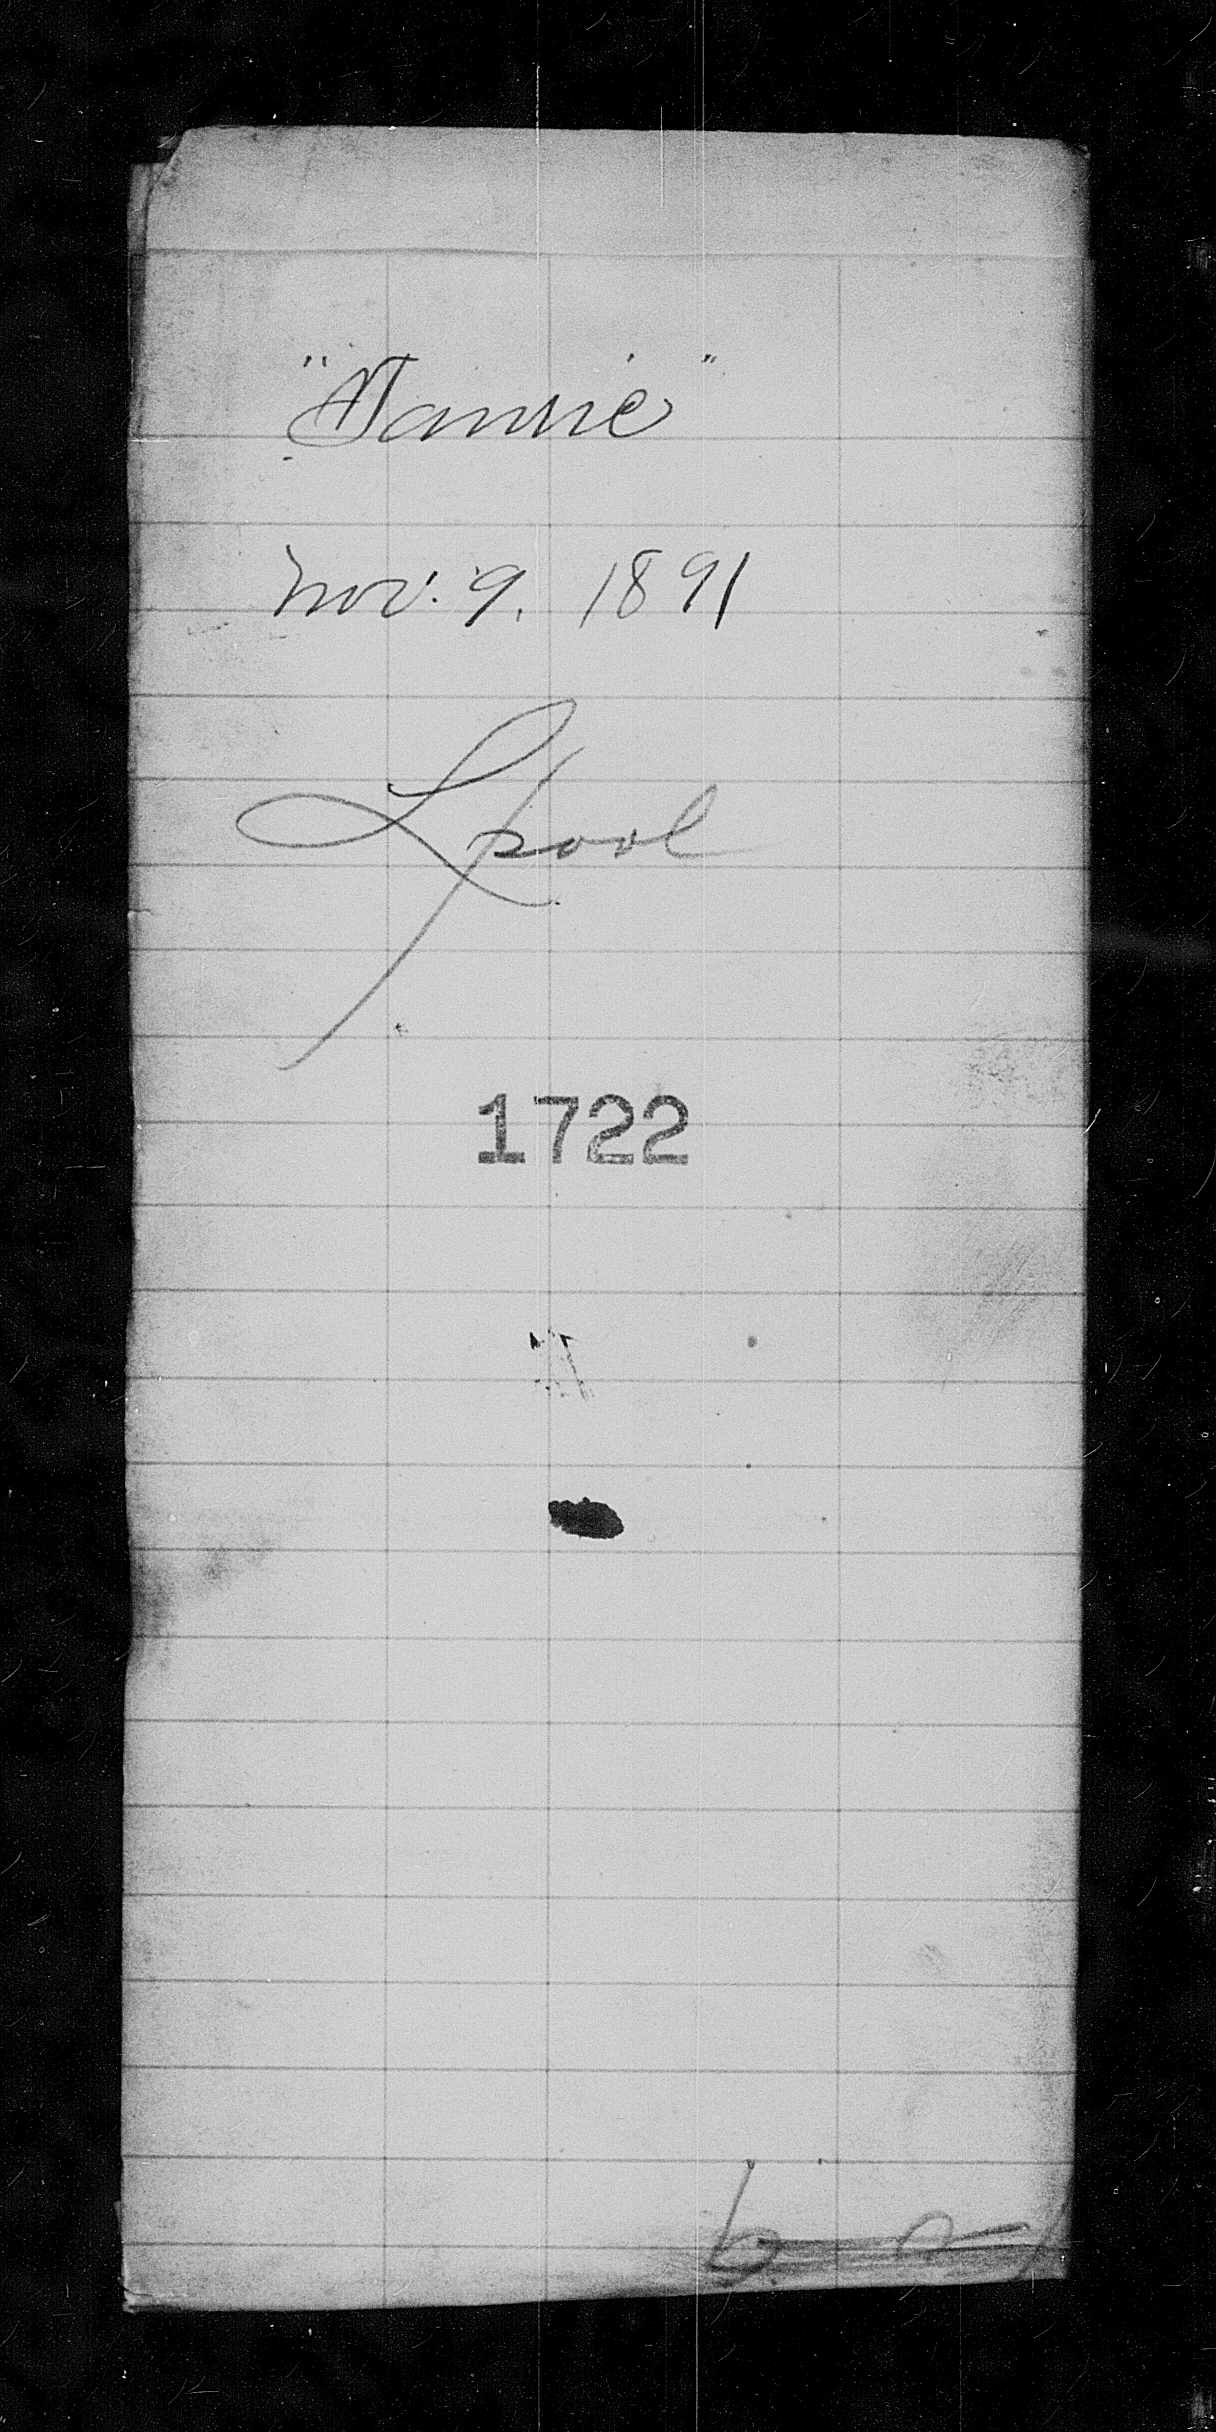 "Nannie"
Nov. 9. 1891
Lpool
1722